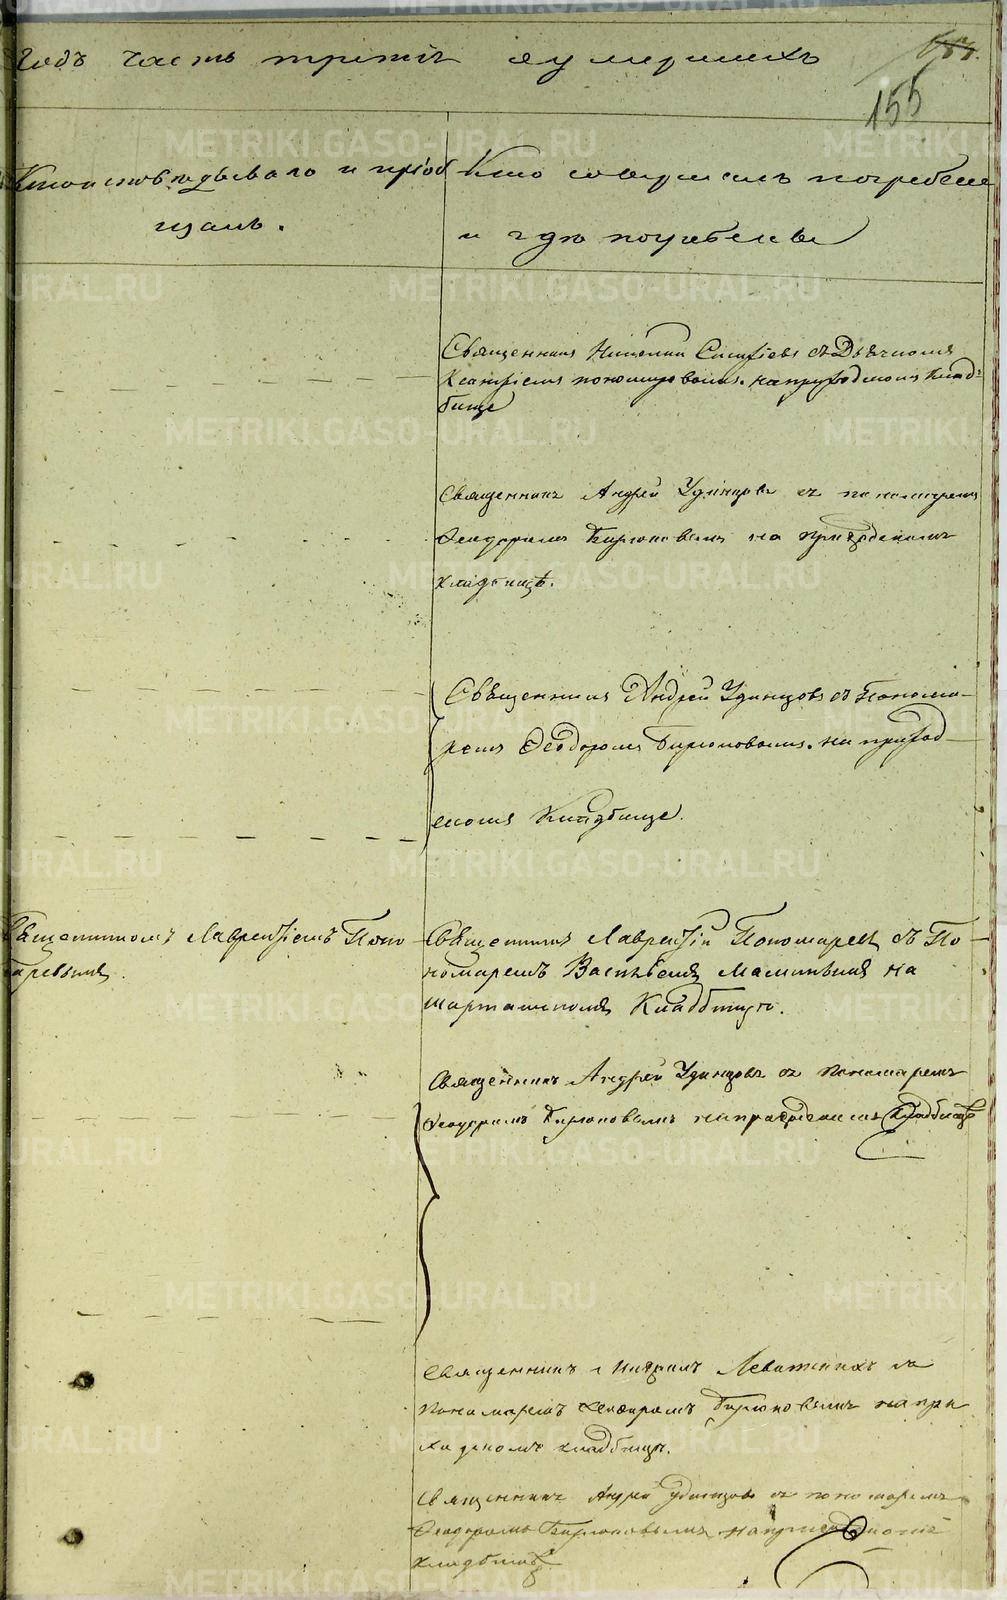 годъ часть третiя о умершихъ
155
Кто исповѣдывалъ и прiоб
щалъ.
Кто совершалъ погребенiе
и гдѣ погребены
Священникъ Николай съ Дьячкомъ
пономаревымъ. на приходскомъ клад-
бище
Священникъ Андрей Удинцовъ съ пономаремъ
Феодоромъ Бирюковымъ на приходскомъ
кладбищѣ.
Священникъ Андрей Удинцовъ съ Понома-
ремъ Феодоромъ Бирюковымъ. на приход-
скомъ Кладбище.
Священникомъ Лаврентiемъ Поно-
маревымъ.
Священникъ Лаврентiй Пономаревъ съ По-
номаремъ Васильемъ Маминымъ на
шарташскомъ Кладбище.
Священникъ Андрей Удинцовъ съ пономаремъ
Феодоромъ Бирюковымъ на приходскомъ Кладбище
Священникъ Левитскихъ съ
Пономаремъ Феодоромъ Бирюковымъ на при
ходскомъ кладбищѣ.
Священникъ Андрей Удинцовъ съ пономаремъ
Феодоромъ Бирюковымъ на приходскомъ
кладбищѣ
METRIKI.GASO-URAL.RU